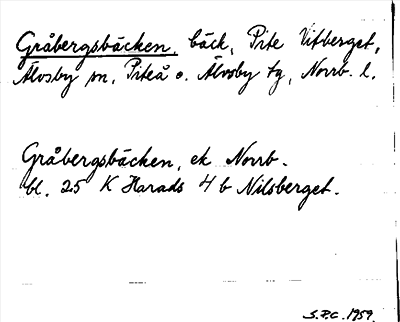 Gråbergsbäcken, bäck, Pite Vitberget,
Älvsby sn, Piteå o. Älvsby tg, Norrb. l.
Gråbergsbäcken, ek Norrb.
bl. 25 K Harads 4 b Nilsberget.
S.P.C. 1959.